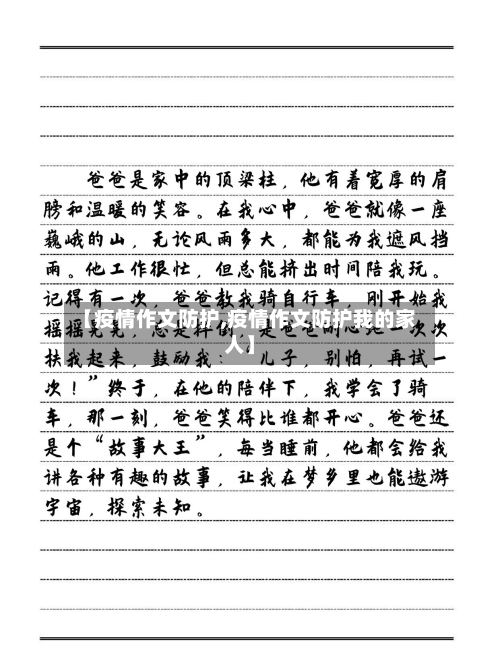 爸爸是家中的顶梁柱，他有着宽厚的肩
膀和温暖的笑容。在我心中，爸爸就像一座
巍峨的山，无论风雨多大，都能为我遮风挡
雨。他工作很忙，但总能挤出时间陪我玩。
记得有一次，爸爸教我骑自行车，刚开始我
【疫情作文防护,疫情作文防护我的家
人】
摇摇晃晃，总是摔倒，是爸爸耐心地一次次
扶我起来，鼓励我：“儿子，别怕，再试一
次！”终于，在他的陪伴下，我学会了骑
车，那一刻，爸爸笑得比谁都开心。爸爸还
是个“故事大王”，每当睡前，他都会给我
讲各种有趣的故事，让我在梦乡里也能遨游
宇宙，探索未知。